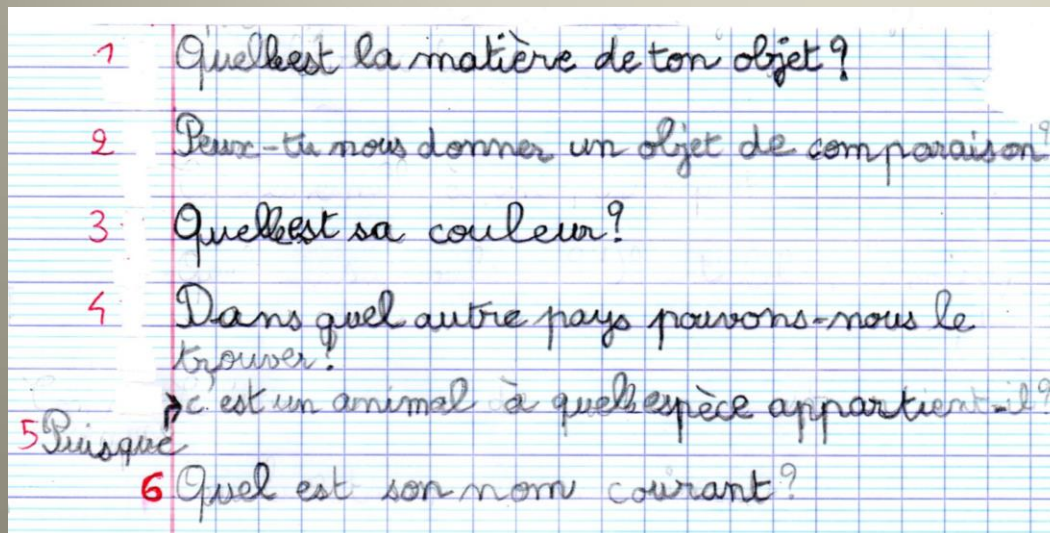 1 Quelle est la matière de ton objet ?
2 Peux-tu nous donner un objet de comparaison ?
3 Quelle est sa couleur ?
4 Dans quel autre pays pouvons-nous le
trouver ?
c'est un animal à quelle espèce appartient-il ?
5 Puisque
6 Quel est son nom courant ?